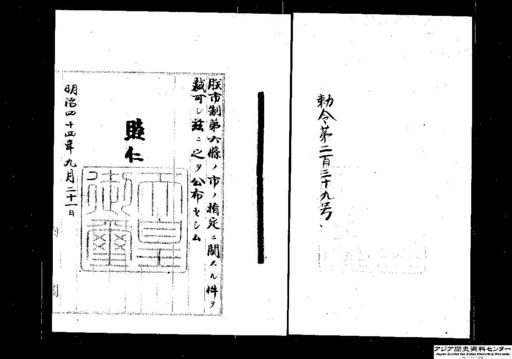 勅令第二百三十九号
朕市制第六條ノ市ノ指定ニ関スル件ヲ
裁可シ茲ニ之ヲ公布セシム
睦仁
明治四十四年九月二十一日
アジア歴史資料センター
Japan Center for Asian Historical Records